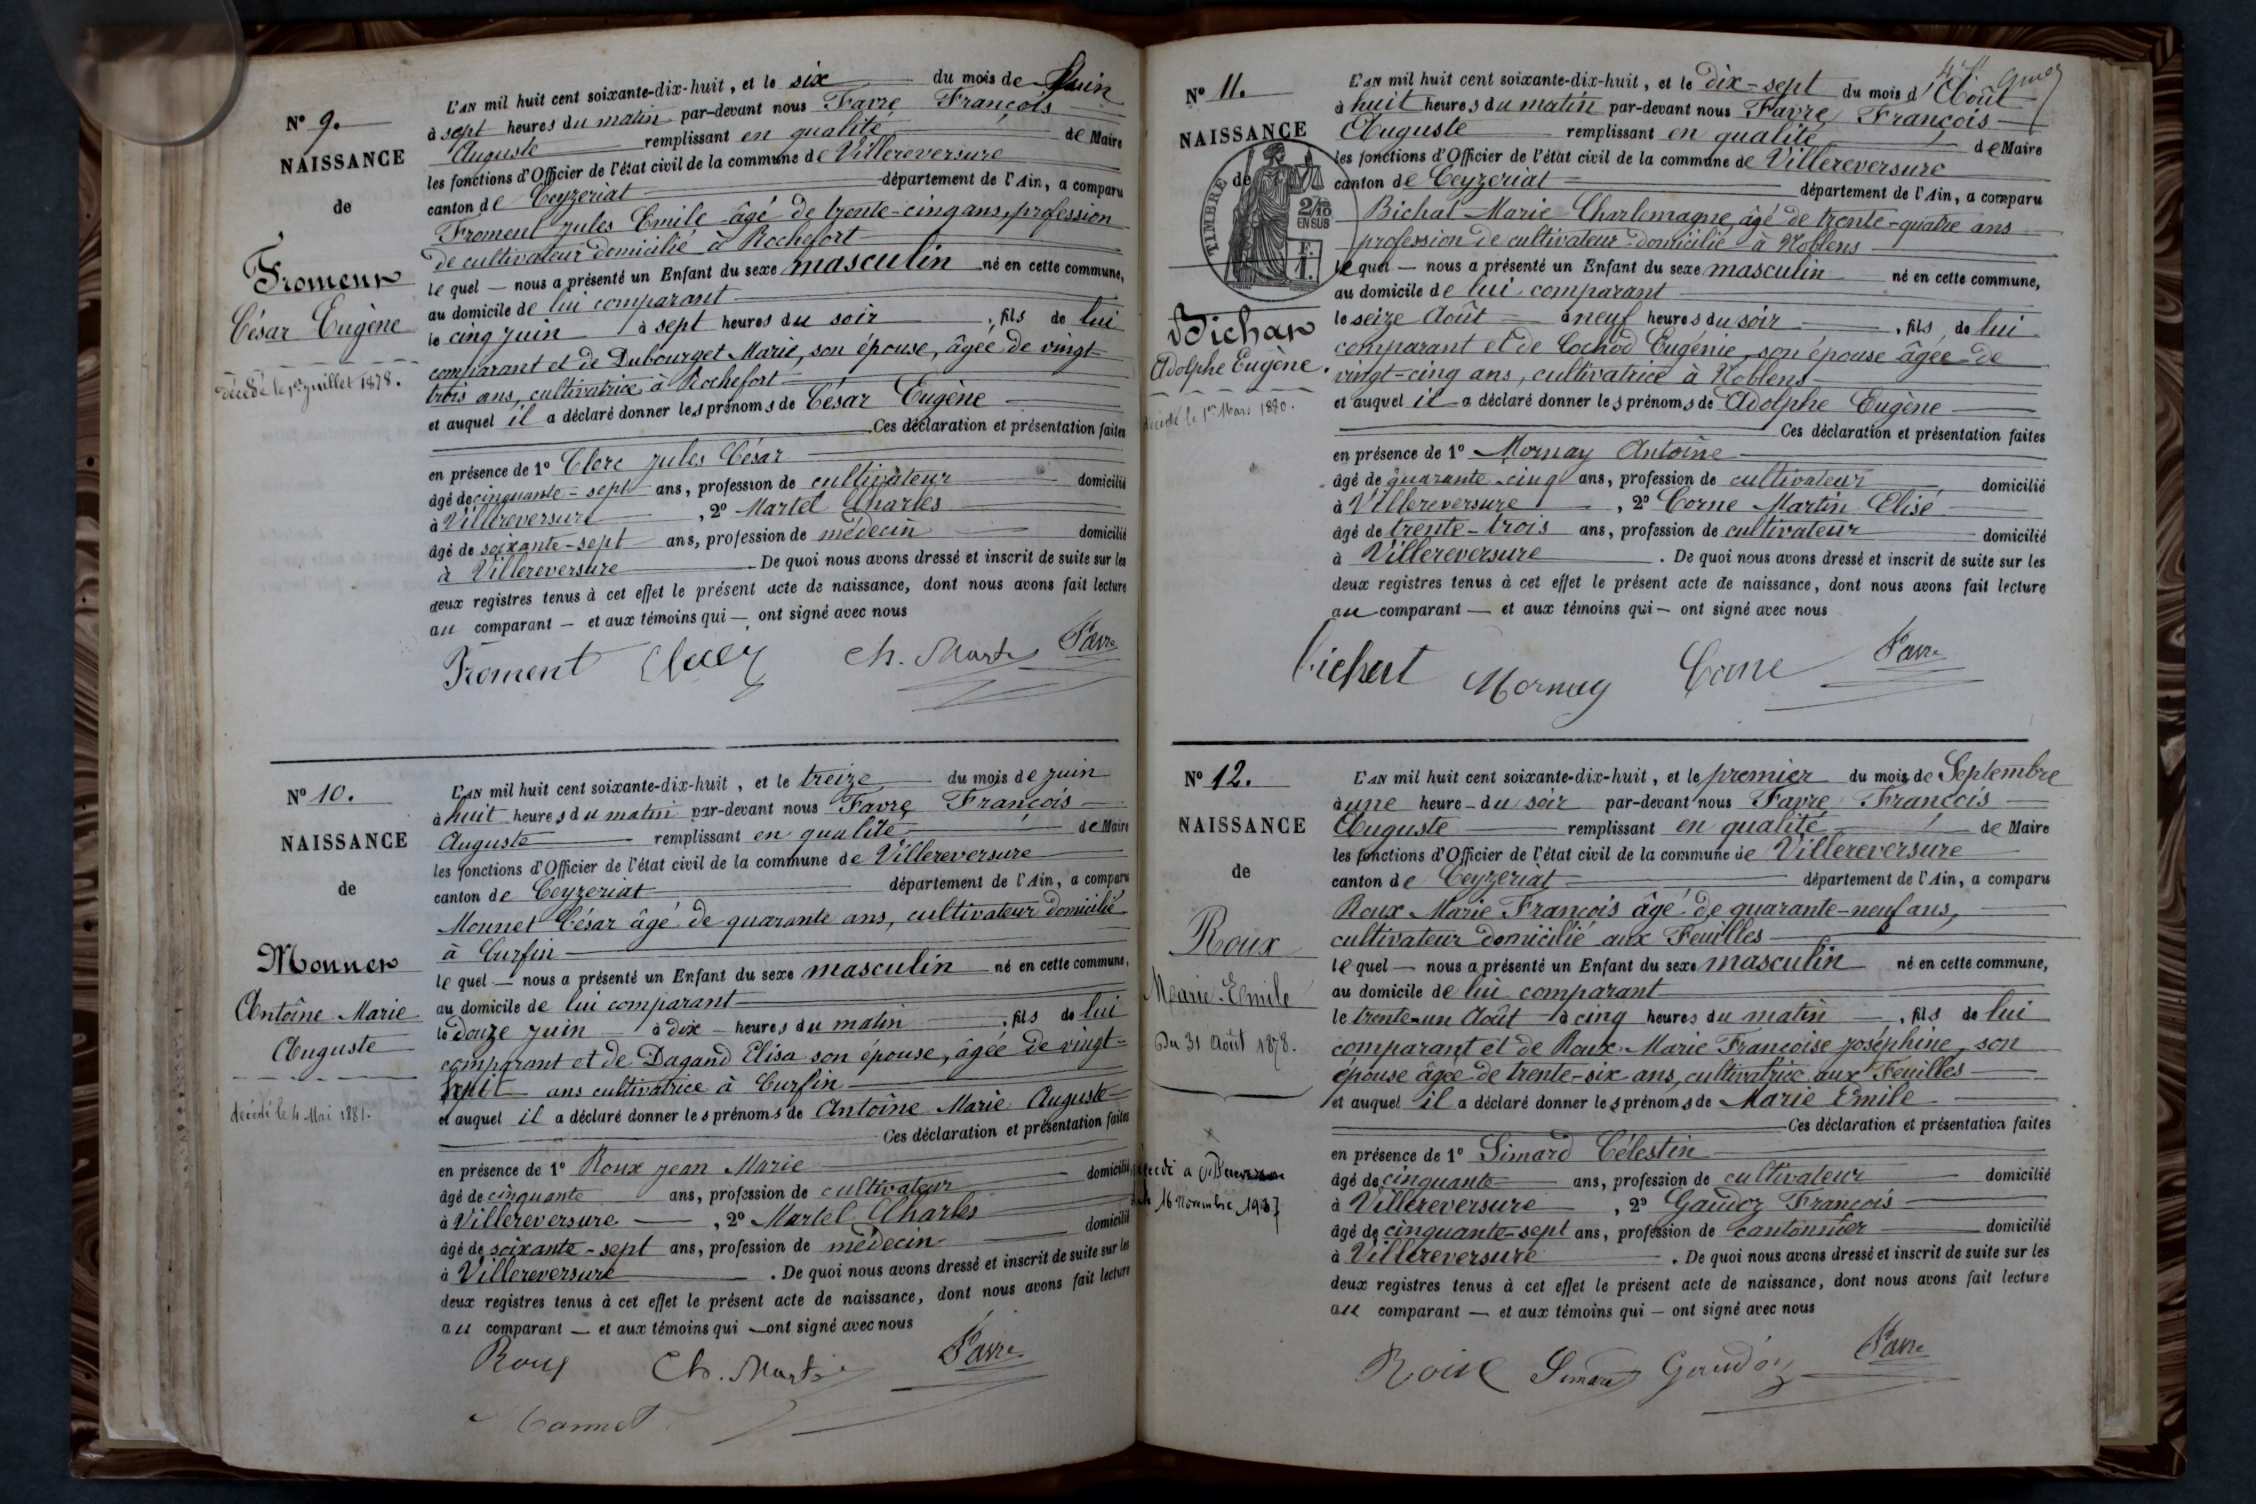 N° 9.
NAISSANCE
de
Froment
César Eugène
décédé le 1er juillet 1878.
L'AN mil huit cent soixante-dix-huit, et le six du mois de Juin
à sept heures du matin par-devant nous Favre François
Auguste remplissant en qualité de Maire
les fonctions d'Officier de l'état civil de la commune de Villereversure
canton de Ceyzeriat département de l'Ain, a comparu
Froment Jules Emile âgé de trente-cinq ans, profession
de cultivateur domicilié à Rochefort
lequel nous a présenté un Enfant du sexe masculin né en cette commune,
au domicile de lui comparant
le cinq juin à sept heures du soir, fils de lui
comparant et de Dubourget Marie, son épouse, âgée de vingt-
trois ans, cultivatrice à Rochefort
et auquel il a déclaré donner les prénoms de César Eugène
Ces déclaration et présentation faites
en présence de 1° Clerc Jules César
âgé de cinquante-sept ans, profession de cultivateur domicilié
à Villereversure, 2° Martel Charles
âgé de soixante-sept ans, profession de médecin domicilié
à Villereversure. De quoi nous avons dressé et inscrit de suite sur les
deux registres tenus à cet effet le présent acte de naissance, dont nous avons fait lecture
au comparant et aux témoins qui ont signé avec nous
Froment Ch. Martel Favre
N° 10.
NAISSANCE
de
Monnet
Antoine Marie
Auguste
décédé le 4 Mai 1881.
L'AN mil huit cent soixante-dix-huit, et le treize du mois de juin
à huit heures du matin par-devant nous Favre François
Auguste remplissant en qualité de Maire
les fonctions d'Officier de l'état civil de la commune de Villereversure
canton de Ceyzeriat département de l'Ain, a comparu
Monnet César âgé de quarante ans, cultivateur domicilié
à Curfin
lequel nous a présenté un Enfant du sexe masculin né en cette commune,
au domicile de lui comparant
le douze juin à dix heures du matin, fils de lui
comparant et de Dagand Elisa son épouse, âgée de vingt-
sept ans cultivatrice à Curfin
et auquel il a déclaré donner les prénoms de Antoine Marie Auguste
Ces déclaration et présentation faites
en présence de 1° Roux Jean Marie
âgé de cinquante ans, profession de cultivateur domicilié
à Villereversure, 2° Martel Charles
âgé de soixante-sept ans, profession de médecin domicilié
à Villereversure. De quoi nous avons dressé et inscrit de suite sur les
deux registres tenus à cet effet le présent acte de naissance, dont nous avons fait lecture
au comparant et aux témoins qui ont signé avec nous
Roux Ch. Martel Favre
N° 11.
NAISSANCE
de
TIMBRE
2/10
EN SUS
Bichat
Adolphe Eugène.
décédé le 1er Mars 1880.
L'AN mil huit cent soixante-dix-huit, et le dix-sept du mois d'Août
à huit heures du matin par-devant nous Favre François
Auguste remplissant en qualité de Maire
les fonctions d'Officier de l'état civil de la commune de Villereversure
canton de Ceyzeriat département de l'Ain, a comparu
Bichat Marie Charlemagne, âgé de trente-quatre ans
profession de cultivateur domicilié à Noblens
lequel nous a présenté un Enfant du sexe masculin né en cette commune,
au domicile de lui comparant
le seize Août à neuf heures du soir, fils de lui
comparant et de Cochod Eugénie, son épouse âgée de
vingt-cinq ans, cultivatrice à Noblens
et auquel il a déclaré donner les prénoms de Adolphe Eugène
Ces déclaration et présentation faites
en présence de 1° Mornay Antoine
âgé de quarante-cinq ans, profession de cultivateur domicilié
à Villereversure, 2° Corne Martin Elisé
âgé de trente-trois ans, profession de cultivateur domicilié
à Villereversure. De quoi nous avons dressé et inscrit de suite sur les
deux registres tenus à cet effet le présent acte de naissance, dont nous avons fait lecture
au comparant et aux témoins qui ont signé avec nous
Mornay Corne Favre
N° 12.
NAISSANCE
de
Roux
Marie Emile
Du 31 Août 1878.
16 Novembre
L'AN mil huit cent soixante-dix-huit, et le premier du mois de Septembre
à une heure du soir par-devant nous Favre François
Auguste remplissant en qualité de Maire
les fonctions d'Officier de l'état civil de la commune de Villereversure
canton de Ceyzeriat département de l'Ain, a comparu
Roux Marie François âgé de quarante-neuf ans,
cultivateur domicilié aux Feuilles
lequel nous a présenté un Enfant du sexe masculin né en cette commune,
au domicile de lui comparant
le trente-un Août à cinq heures du matin, fils de lui
comparant et de Roux Marie Françoise Joséphine, son
épouse âgée de trente-six ans, cultivatrice aux Feuilles
et auquel il a déclaré donner les prénoms de Marie Emile
Ces déclaration et présentation faites
en présence de 1° Simard Célestin
âgé de cinquante ans, profession de cultivateur domicilié
à Villereversure, 2° Gaudoz François
âgé de cinquante-sept ans, profession de cantonnier domicilié
à Villereversure. De quoi nous avons dressé et inscrit de suite sur les
deux registres tenus à cet effet le présent acte de naissance, dont nous avons fait lecture
au comparant et aux témoins qui ont signé avec nous
Roux Simard Gaudoz Favre